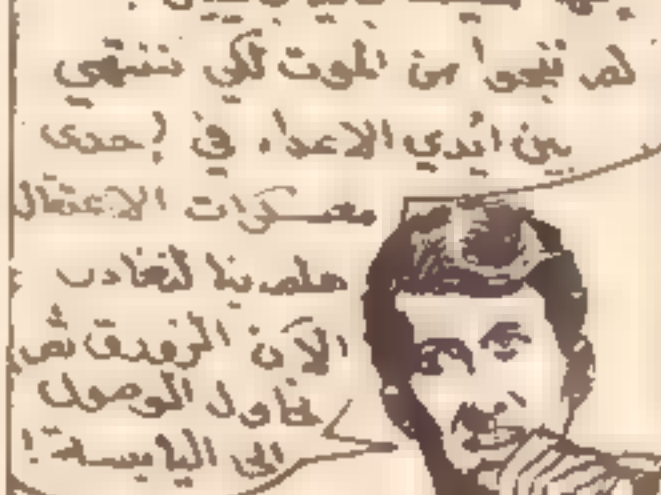 لم ننجوا من الموت لكي ننتهي
بين ايدي الاعداء في إحدى
معسكرات الاعتقال
هلم بنا لنغادر
الآن الزورق ثم
نحاول الوصول
الى اليابسة!